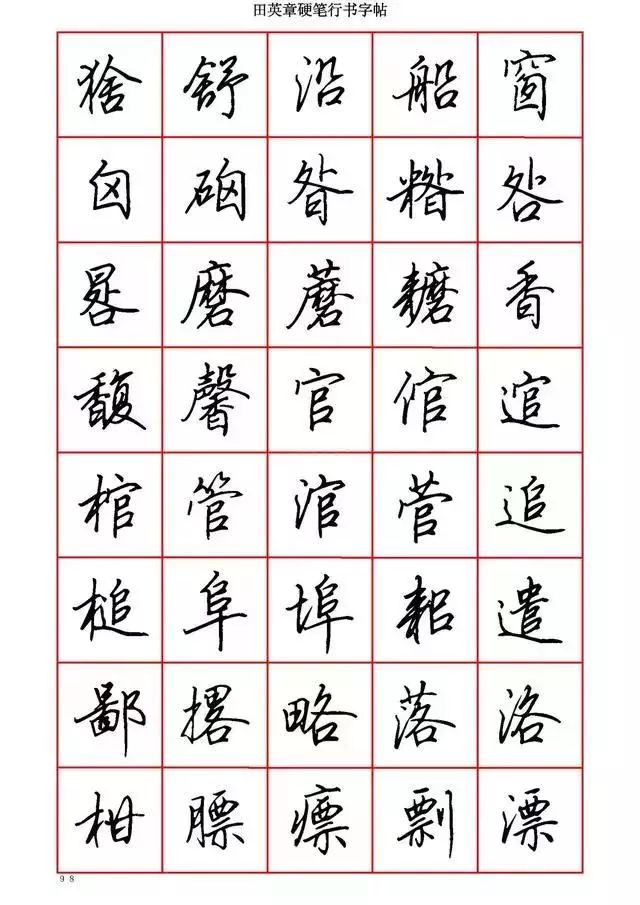 田英章硬笔行书字帖
猞 舒 沿 船 窗
囟 硇 昝 糌 咎
晷 磨 蘑 耱 香
馥 馨 官 倌 逭
棺 管 涫 菅 追
槌 阜 埠 耜 遣
鄙 撂 略 落 洛
柑 膘 瘭 剽 漂
98